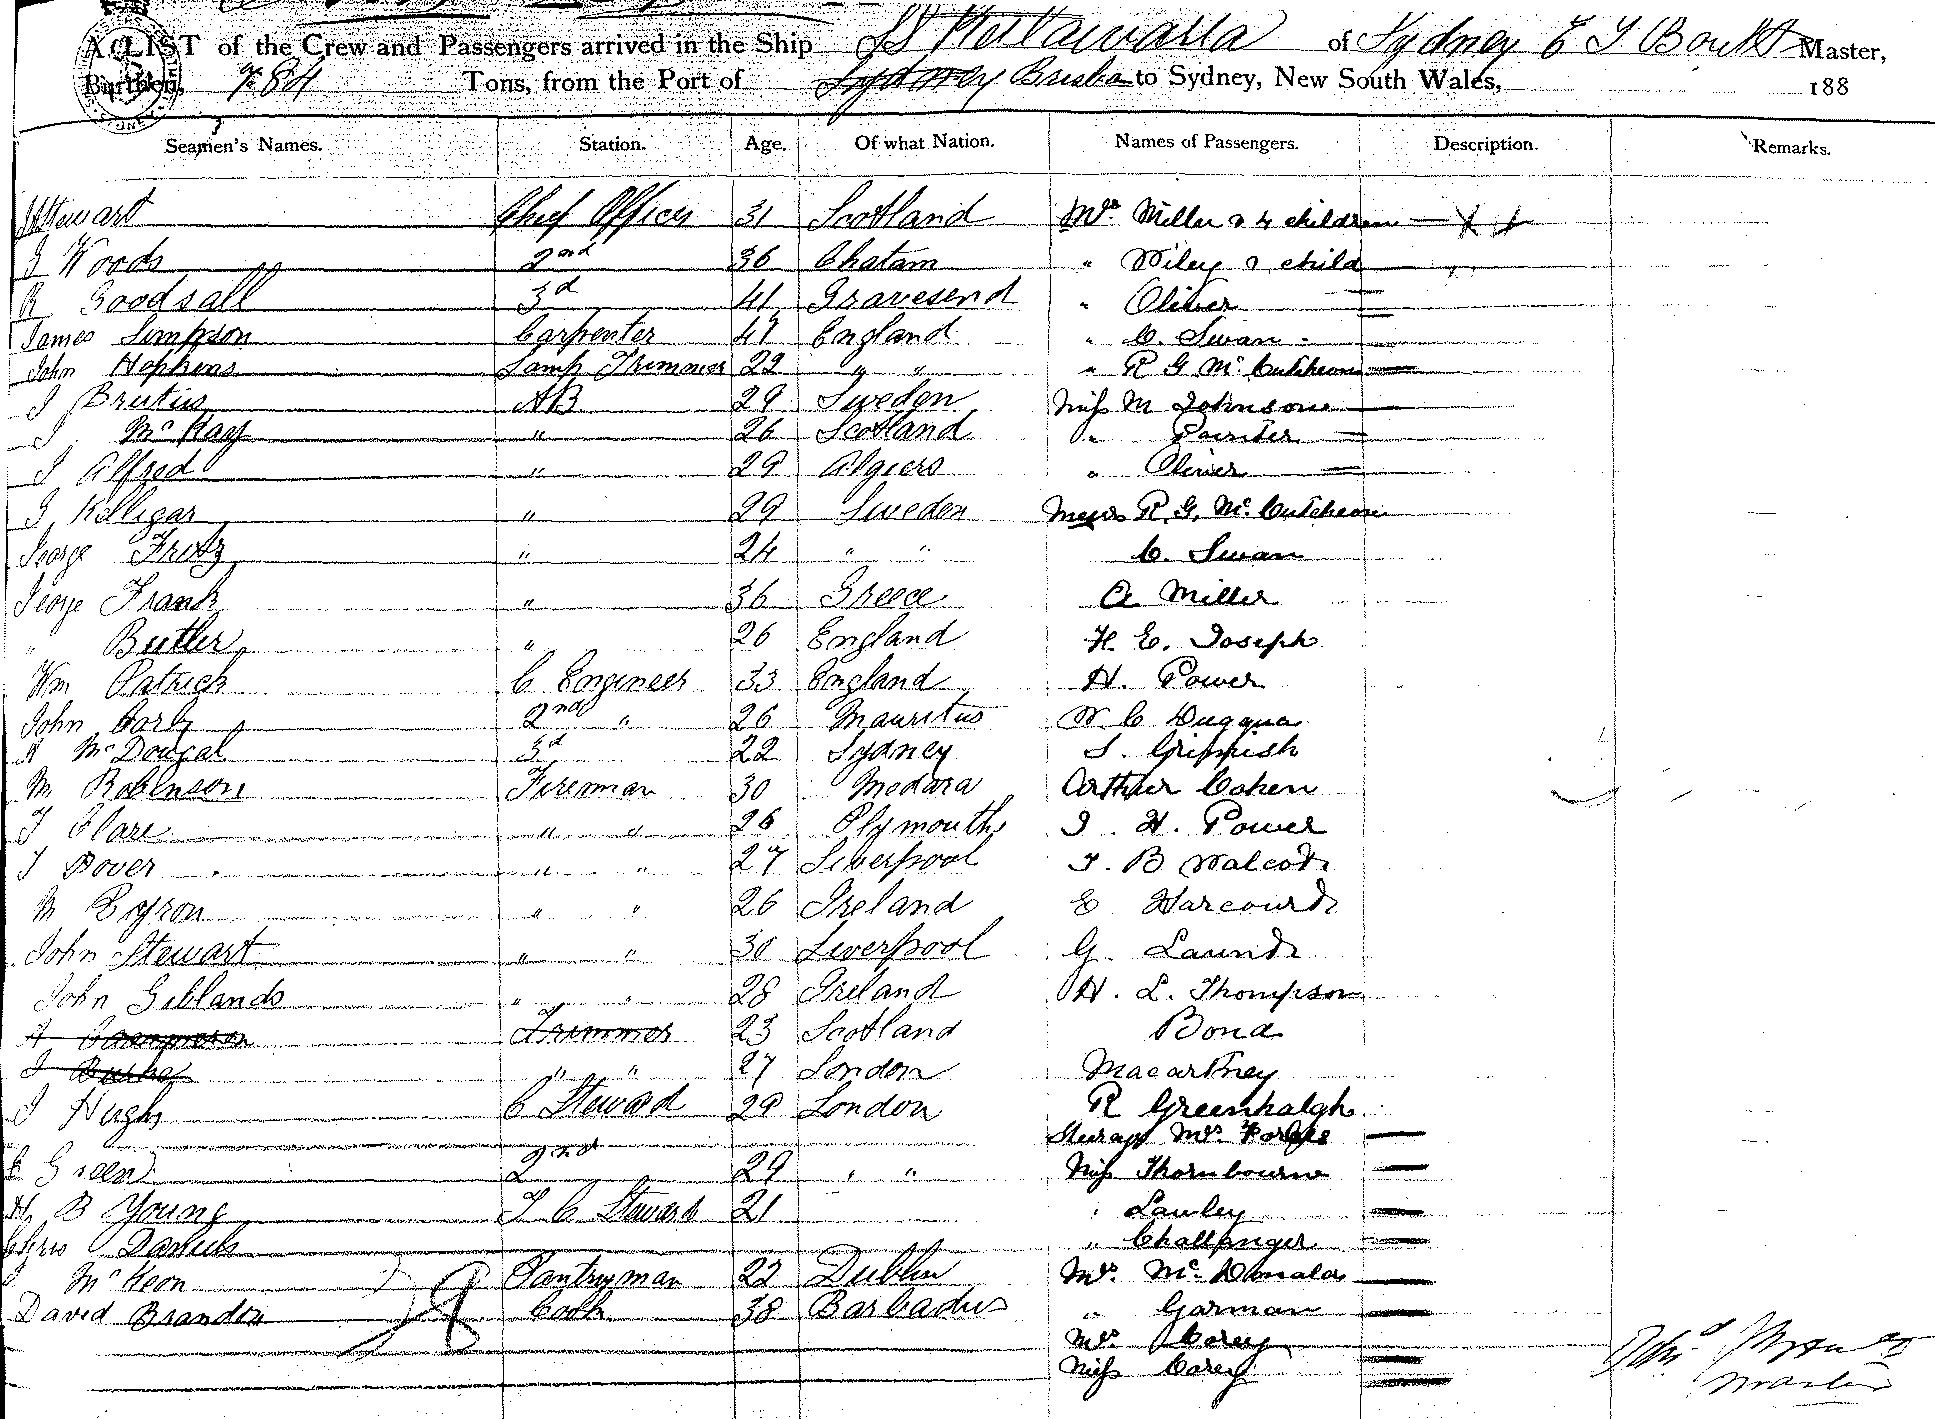 A LIST of the Crew and Passengers arrived in the Ship SS Wollowalla of Sydney Master,
Burthen, 784 Tons, from the Port of Sydney Brisba to Sydney, New South Wales, 188
Seamen's Names. Station. Age. Of what Nation. Names of Passengers. Description. Remarks.
Stewart Chief Officer 31 Scotland Mrs Miller & 4 children
J Woods 2nd 36 Chatam " Wiley & child
R Goodsall 3d 41 Gravesend " Oliver
James Simpson Carpenter 47 England " C. Swan
John Hopkins Lamp Trimmer 22 " " " R G McCutcheon
J Brutus AB 29 Sweden Miss M Johnson
J McKay " 26 Scotland " Painter
J Alfred " 29 Algiers " Oliver
J Killigar " 29 Sweden Messrs R. G. McCutcheon
George Fritz " 24 " " C. Swan
George Frank " 36 Greece A Miller
" Butler " 26 England H. E. Joseph
Wm Patrick C Engineer 33 England H. Power
John Corby 2nd " 26 Mauritus W C Duggua
A McDougal 3d 22 Sydney S. Griffish
M Robinson Fireman 30 Madara Arthur Cohen
J Hare " " 26 Plymouth J. H. Power
J Bover " " 27 Liverpool J. B Walcot
M Byron " " 26 Ireland E Harcourt
John Stewart " " 30 Liverpool G. Laund
John Giblands " " 28 Ireland H. L. Thompson
Trimmer 23 Scotland Bond
J Burke " " 27 London Macartney
J Hugh C Steward 29 London R Greenhalgh
Steerage Mrs Forbes
E Green 2nd 29 " " Miss Thornbourn
H B Young F C Steward 21 " Lawley
Chris Daniels " Challenger
McKeon Pantryman 22 Dublin Mrs. McDonald
David Brandon Cook 38 Barbadus " Garman
Mrs. Corey
Miss Corey
Master